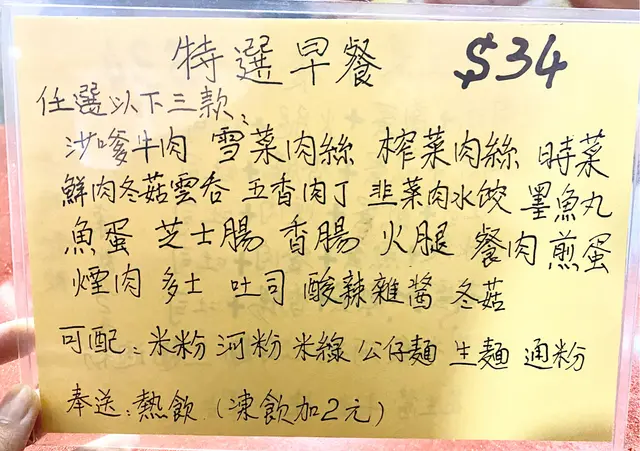 特選早餐 $34
任選以下三款：
沙嗲牛肉 雪菜肉絲 榨菜肉絲 時菜
鮮肉冬菇雲吞 五香肉丁 韭菜肉水餃 墨魚丸
魚蛋 芝士腸 香腸 火腿 餐肉 煎蛋
煙肉 多士 吐司 酸辣雜醬 冬菇
可配：米粉 河粉 米線 公仔麵 生麵 通粉
奉送：熱飲（凍飲加2元）